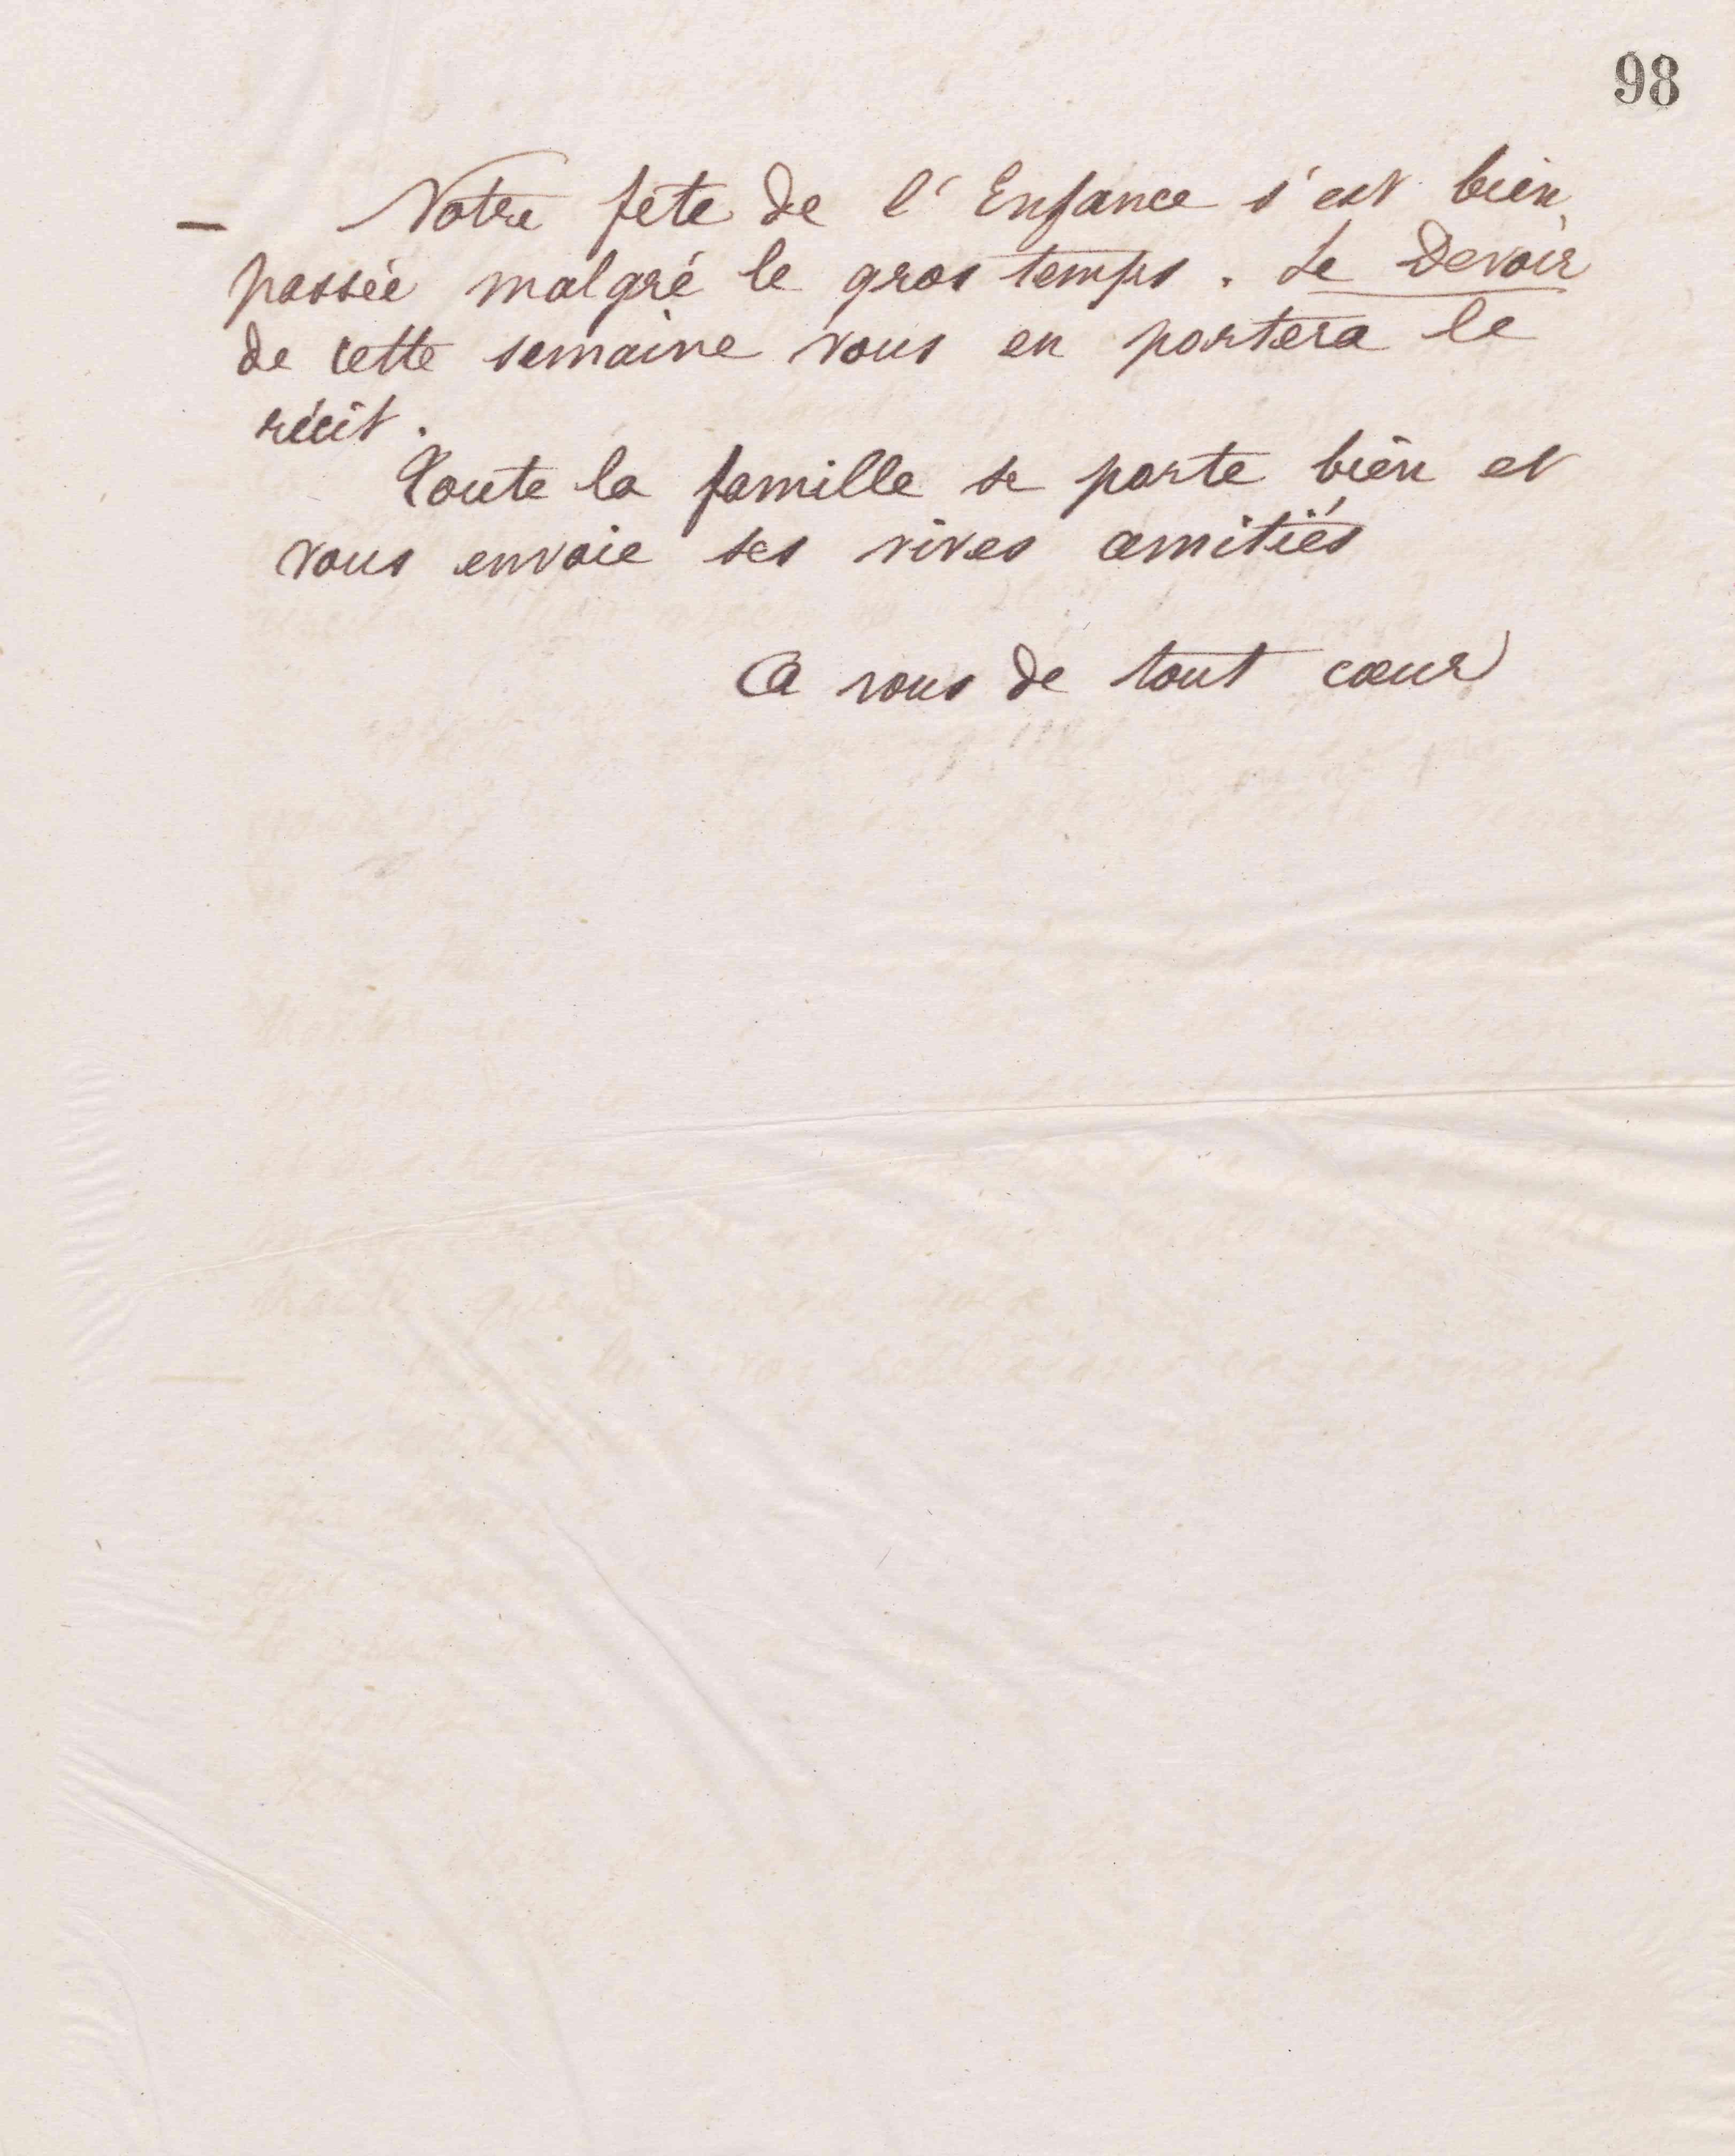 98
— Notre fête de l'Enfance s'est bien
passée malgré le gros temps. Le Devoir
de cette semaine vous en portera le
récit.
Toute la famille se porte bien et
vous envoie ses vives amitiés
A vous de tout cœur